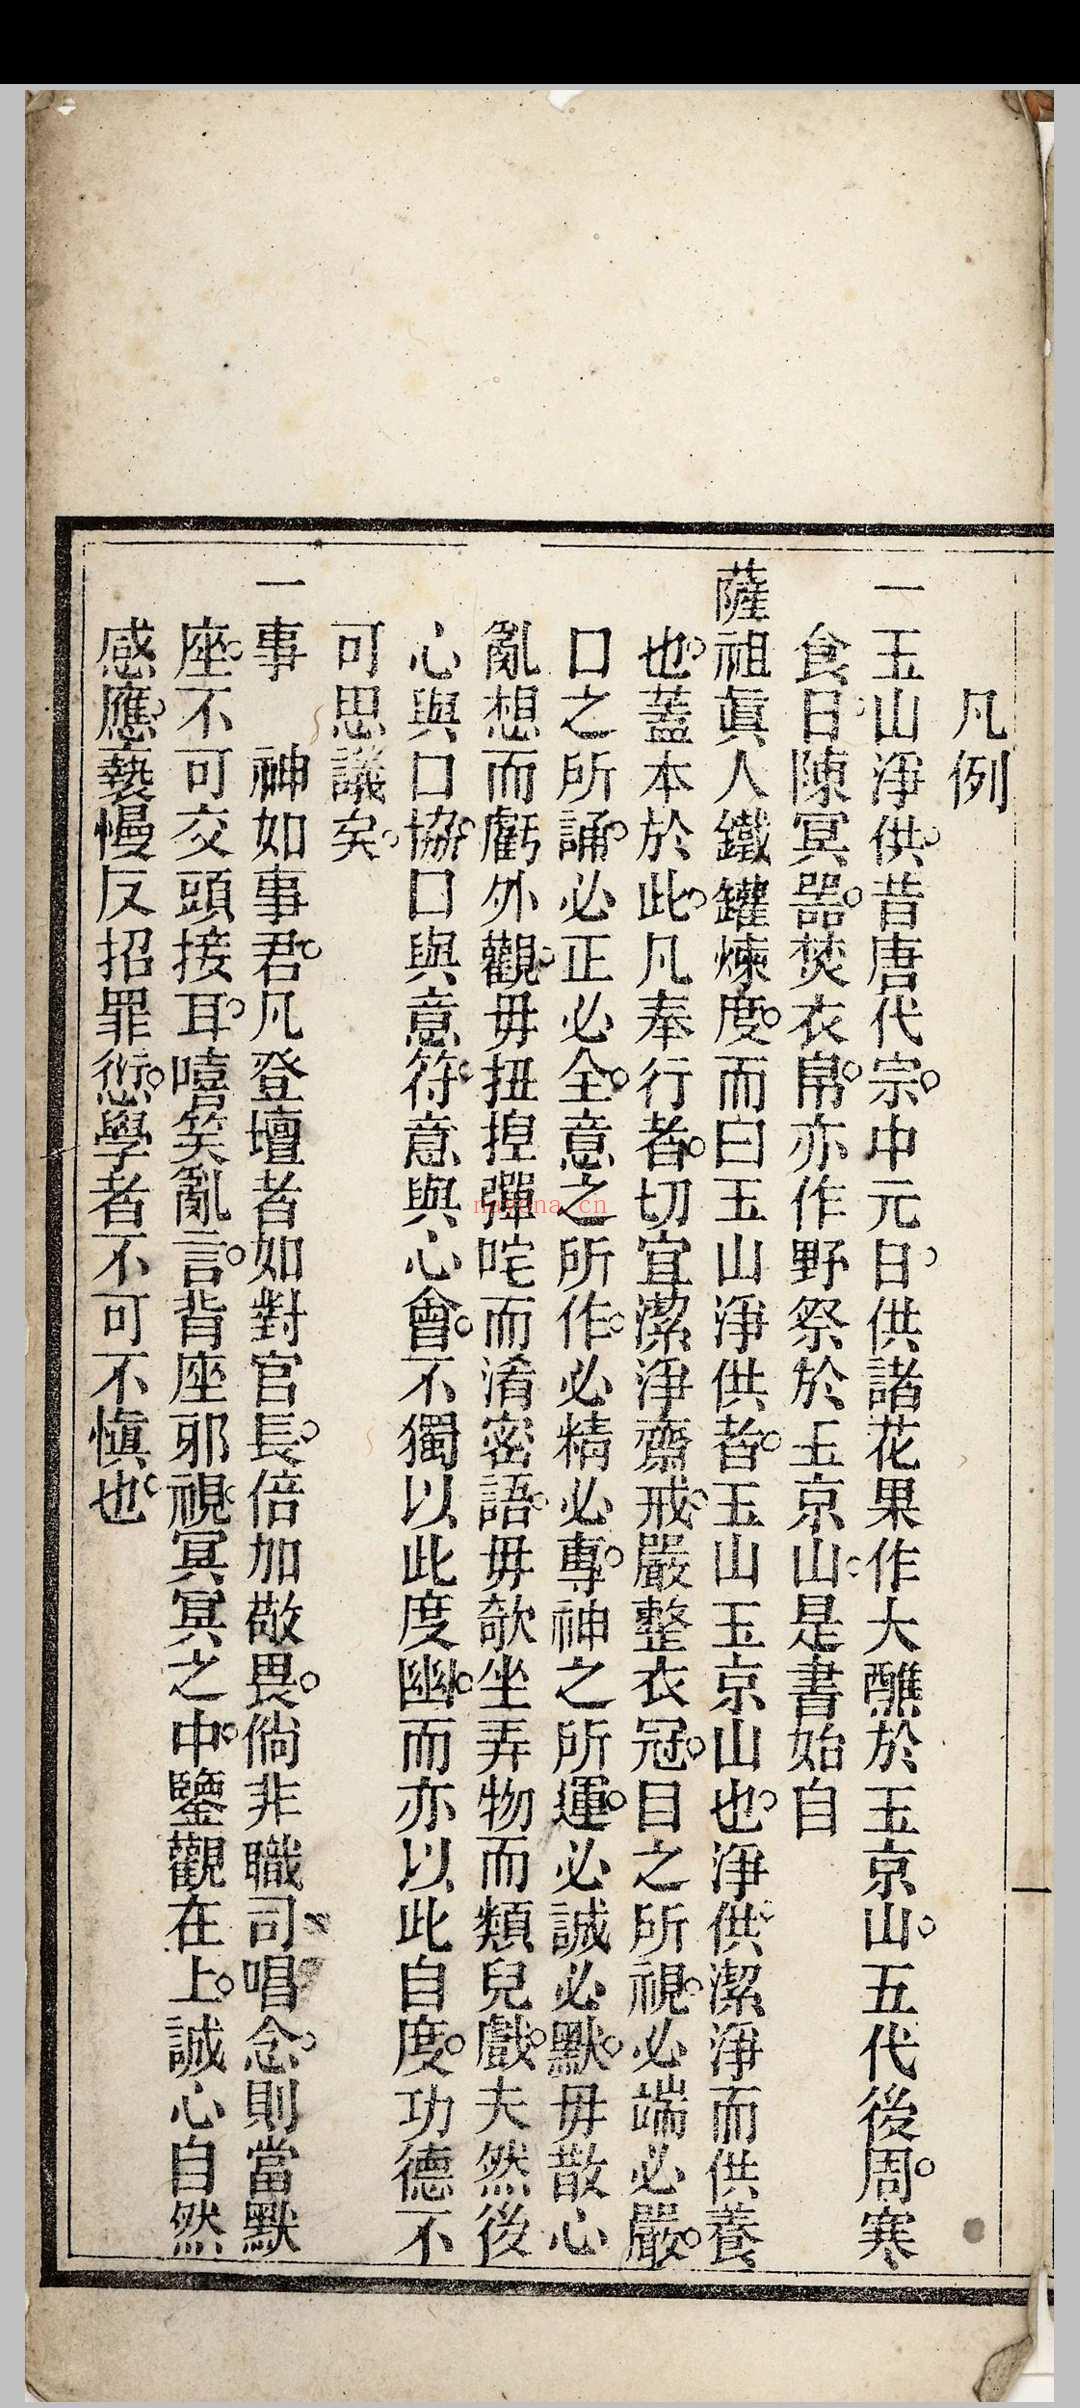 凡例
一玉山淨供。昔唐代宗。中元日。供諸花果作大醮於玉京山。五代後周。寒
食日。陳冥器。焚衣帛。亦作野祭於玉京山。是書始自
薩祖眞人鐵罐煉度。而曰玉山淨供者。玉山玉京山也。淨供。潔淨而供養
也。蓋本於此。凡奉行者。切宜潔淨齋戒。嚴整衣冠。目之所視。必端必嚴。
口之所誦。必正必全。意之所作。必精必專。神之所運。必誠必默。毋散心
亂想而虧外觀。毋扭揑彈咤而淆密語。毋欹坐弄物而類兒戲。夫然後
心與口協。口與意符。意與心會。不獨以此度幽。而亦以此自度。功德不
可思議矣。
一事　神如事君。凡登壇者如對官長。倍加敬畏。倘非職司唱念。則當默
座。不可交頭接耳。嘻笑亂言。背座邪視。冥冥之中。鑒觀在上。誠心自然
感應。褻慢反招罪愆。學者不可不愼也。
nayona.cn